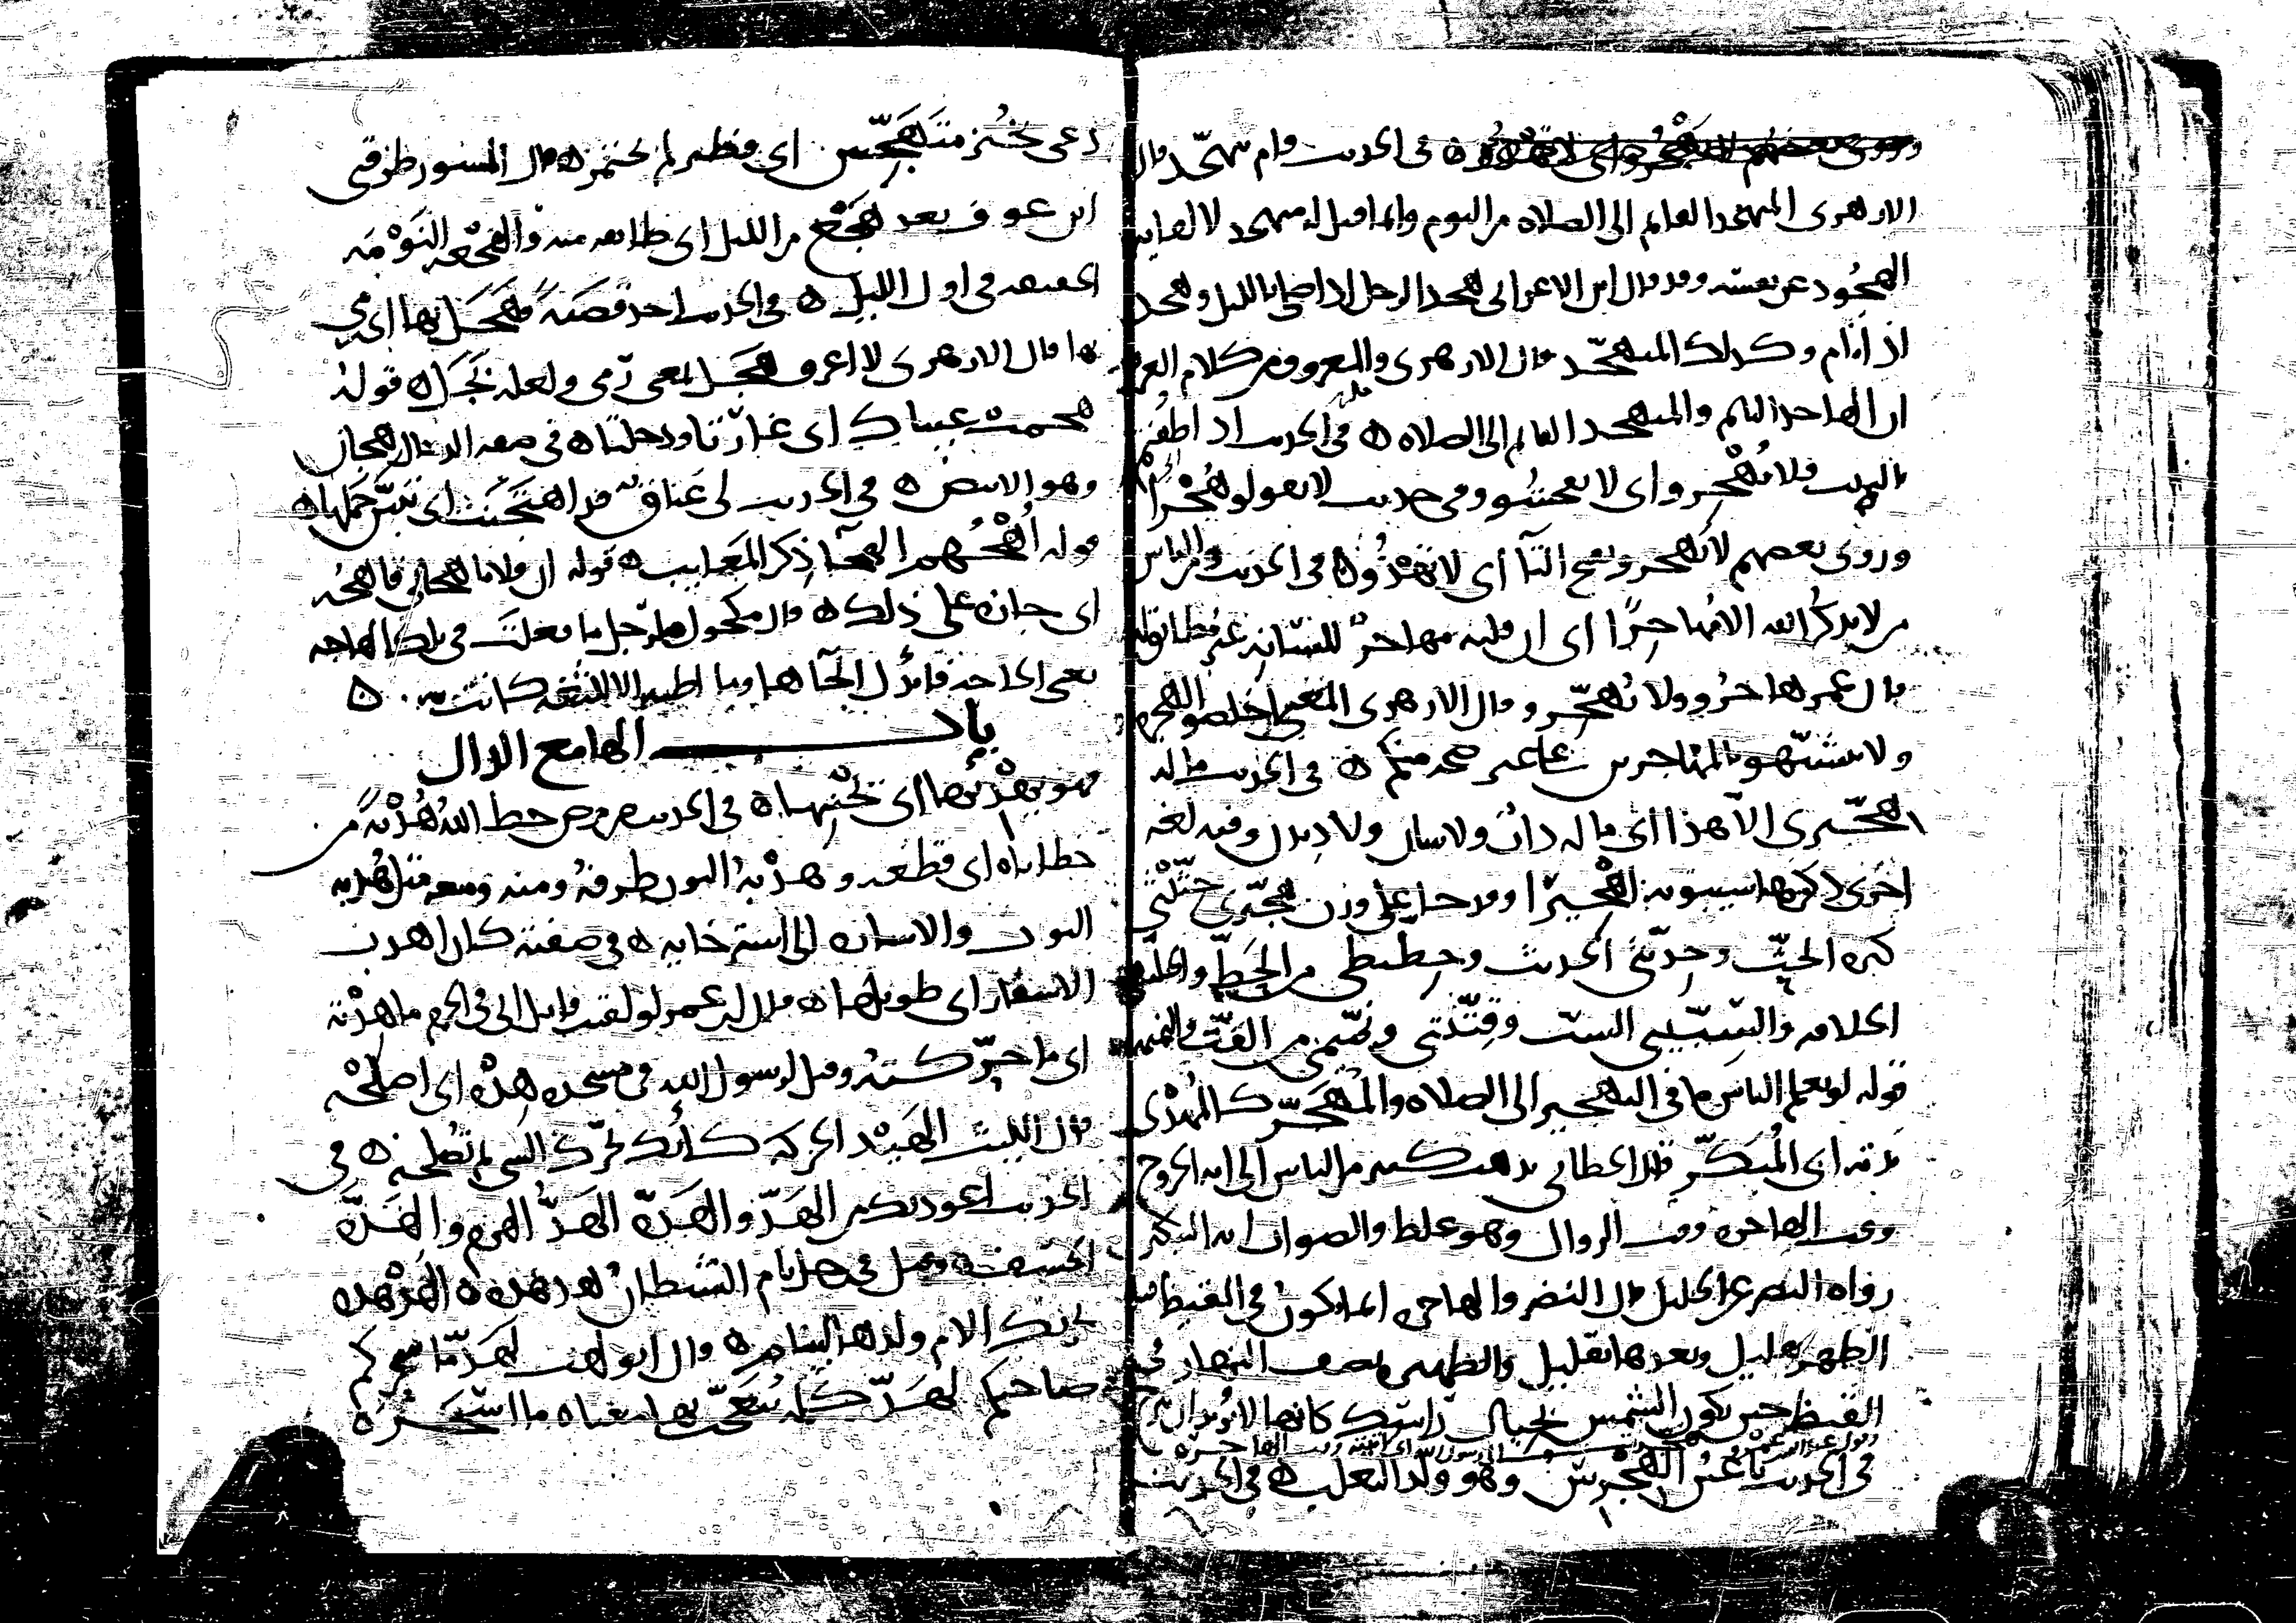 وروى بعضهم لا تهجروا اى لا تهذوا ه فى الحديث وام تهجد قال
الازهرى المتهجد القايم الى الصلاه من النوم وانما قيل له متهجد لالقايه
الهجود عن نفسه وقد قال ابن الاعرابى هجد الرجل اذا صلى بالليل وهجد
اذا نام وكذلك المتهجد قال الازهرى والمعروف من كلام العرب
ان الهاجد النايم والمتهجد القايم الى الصلاه ه فى الحديث اذا طفتم
بالبيت فلا تهجروا اى لا تفحشوا وفى حديث لا تقولوا هجرا
وروى بعضهم لا تهجروا بفتح التآ اى لا تهذوا ه فى الحديث ومن الناس
من لا يذكر الله الا مهاجرا اى ان قلبه مهاجر للسانه غير مطابق له
قال عمر هاجروا ولا تهجروا قال الازهرى المعنى اخلصوا الهجره
ولا تشبهوا بالمهاجرين على غير صحه منكم ه فى الحديث ماله
هجيرى الا هذا اى ما له داب ولا شان ولا ديدن وفيه لغه
اخرى ذكرها سيبويه اهجيرا وقد جا على وزن هجيرى حثيثى
كثره الحث وحديثى الحديث وحطيطى من الحط والخليفى
الخلافه والسبيبى السب وقتيتى ونميمى من القت والنميمه
قوله لو يعلم الناس ما فى التهجير الى الصلاه والمهجر كالمهدى
بدنه اى المبكر قال الخطابى يذهب كثير من الناس الى انه الخروج
وقت الهاجره وقت الزوال وهو غلط والصواب انه التبكير
رواه النضر عن الخليل قال النضر والهاجره انما تكون فى القيظ قبل
الظهر بقليل وبعدها بقليل والظهيره نصف النهار فى
القيظ حين تكون الشمس بحيال راسك كانها لا تريد ان تبرح
فى الحديث عين الهجرس وهو ولد الثعلب ه فى الحديث
دعى بخبز متهجس اى فطير لم يختمر ه قال المسور طرقنى
ابن عوف بعد هجع من الليل اى طايفه منه والهجعه النومه
الخفيفه فى اول الليل ه فى الحديث اخذ قصبه فهجل بها اى رمى
بها قال الازهرى لا اعرف هجل بمعنى رمى ولعله نجل ه قوله
هجمت عيناك اى غارتا ودخلتا ه فى صفه الدجال هجان
وهو الابيض ه فى الحديث لى عناق قد اهتجنت اى تبين حملها ه
قوله اهجهم الهجآ ذكر المعايب ه قوله ان فلانا هجانى فاهجه
اى جازه على ذلك ه قال مكحول لرجل ما فعلت فى تلك الهاجه
يعنى الحاجه فابدل الحآ هآ وما اظنه الا للثغه كانت به ه
باب الهآ مع الدال
فهو يهدبها اى يجنيها ه فى الحديث من مرض حط الله هدبه من
خطاياه اى قطعه وهدبه الثوب طرفه ومنه ومعه مثل هدبه
الثوب والاشاره الى استرخايه ه فى صفته كان اهدب
الاشفار اى طويلها ه قال ابن عمر لو لقيت قاتل ابى فى الحرم ما هدته
اى ما حركته وقيل لرسول الله فى مسجده هده اى اصلحه
قال الليث الهيد الحركه كانك تحرك الشى ثم تصلحه ه فى
الحديث اعوذ بك من الهد والهده الهد الهدم والهده
الخسف ه
صاحبكم لهد كلمه يتعجب بها معناه ما اسحره